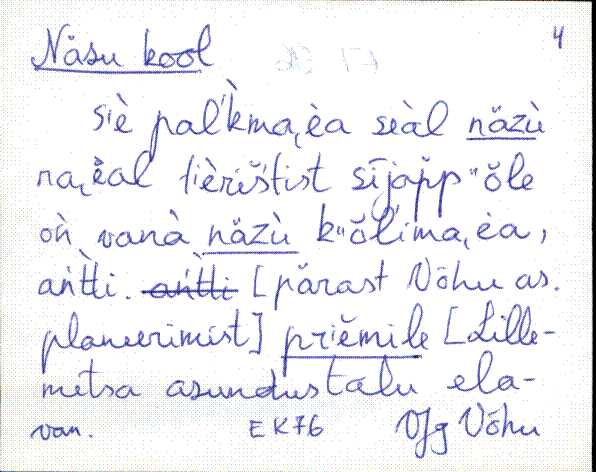 4
Näsu kool
siè pal'k̀ma,èa seàl näzù
na,èal tièrišt'ist sījap̆p ŭŏle
oǹ vanà näzù kŭŏl'ima,èa,
ańt̀ti. ańt̀ti [pärast Võhu as.
planeerimist] priĕmile [Lille-
metsa asundustalu ela-
van. EK76 Vjg Võhu